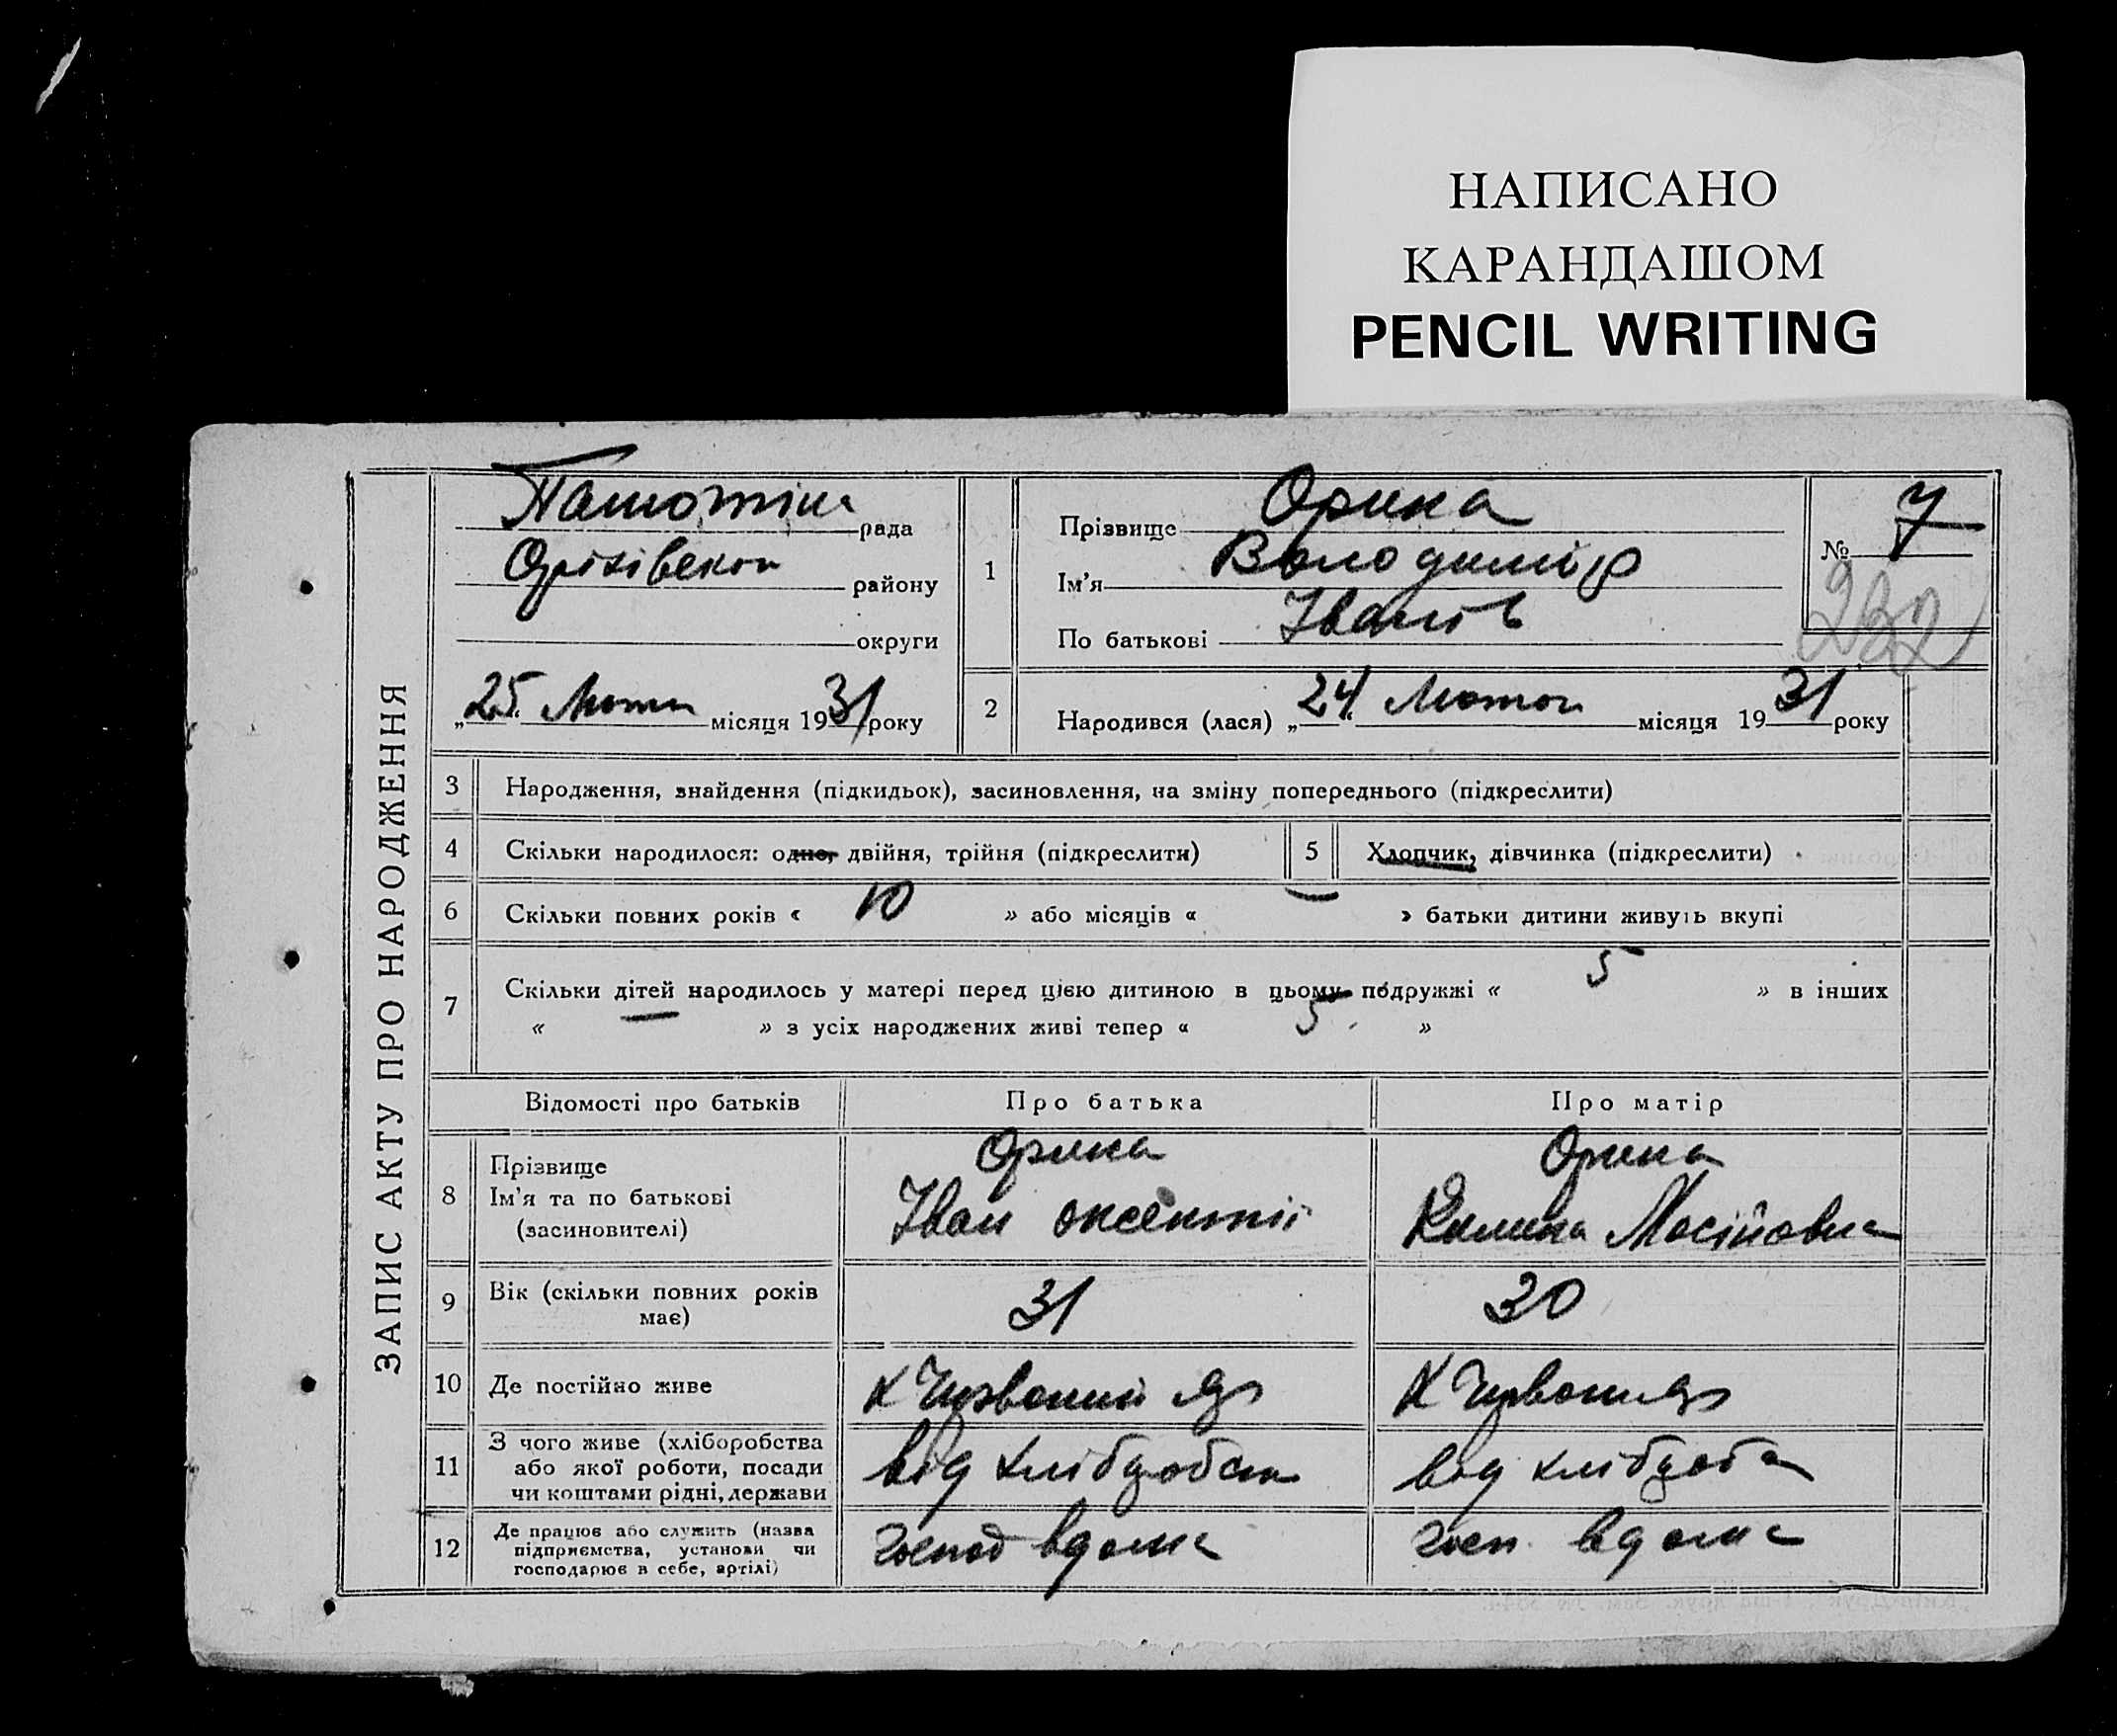 НАПИСАНО
КАРАНДАШОМ
PENCIL WRITING
ЗАПИС АКТУ ПРО НАРОДЖЕННЯ
рада
району
округи
„25" місяця 1931 року
1
Прізвище Орика
Ім'я Володимір
По батькові Іванів
№ 7
232
2
Народився (лася) „24" Лютого місяця 1931 року
3 Народження, знайдення (підкидьок), засиновлення, на зміну попереднього (підкреслити)
4 Скільки народилося: одно, двійня, трійня (підкреслити)
5 Хлопчик, дівчинка (підкреслити)
6 Скільки повних років « 10 » або місяців « — » батьки дитини живуть вкупі
7 Скільки дітей народилось у матері перед цією дитиною в цьому подружжі « 5 » в інших
« — » з усіх народжених живі тепер « 5 »
Відомості про батьків Про батька Про матір
8 Прізвище
Ім'я та по батькові
(засиновителі)
Орика
Іван
Орика
Мосійовна
9 Вік (скільки повних років
має)
31
30
10 Де постійно живе
Х Червоний Яр
Х Червон Яр
11 З чого живе (хліборобства
або якої роботи, посади
чи коштами рідні, держави
від
від
12 Де працює або служить (назва
підприємства, установи чи
господарює в себе, артілі)
господ вдома
госп. вдома